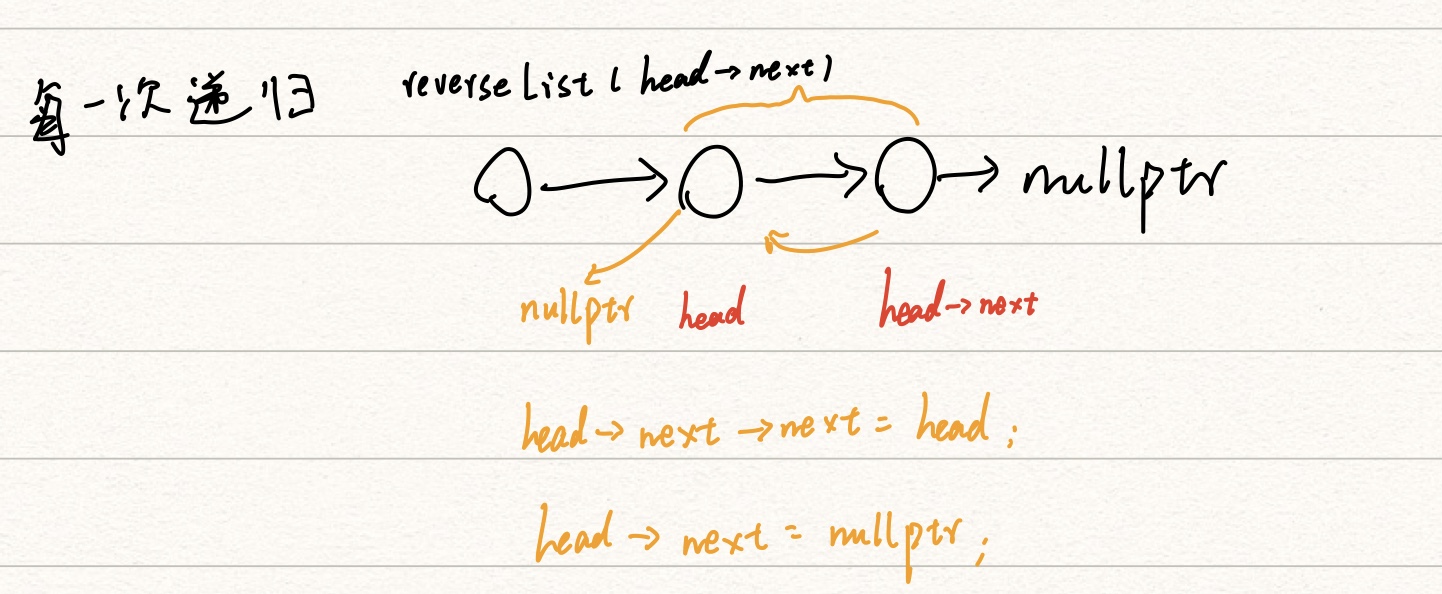 每一次递归 reverseList(head→next)
nullptr
nullptr head head→next
head→next→next = head;
head→next = nullptr;